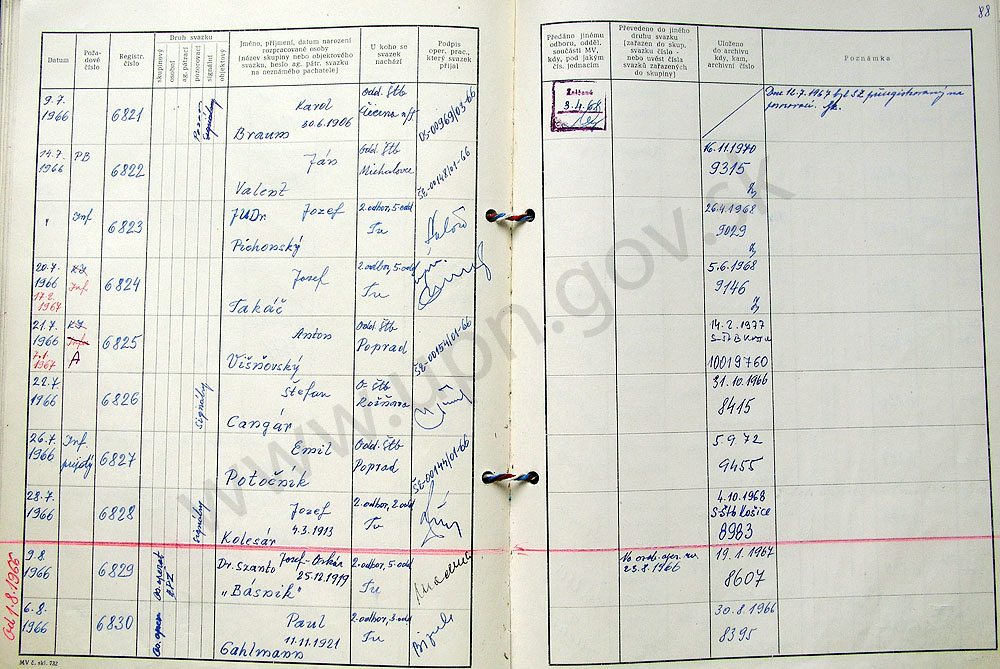 88
Datum
Pořa-
dové
číslo
Registr.
číslo
Druh svazku
skupinový
osobní
ag. pátrací
pozorovací
signální
objektový
Jméno, příjmení, datum narození
rozpracované osoby
(název skupiny nebo objektového
svazku, heslo ag. pátr. svazku
na neznámého pachatele)
U koho se
svazek
nachází
Podpis
oper. prac.,
který svazek
přijal
Předáno jinému
odboru, odděl.
součásti MV,
kdy, pod jakým
čís. jednacím
Převedeno do jiného
druhu svazku
(zařazen do skup.
svazku číslo -
nebo uvést čísla
svazků zařazených
do skupiny)
Uloženo
do archivu
kdy, kam,
archivní číslo
Poznámka
9.7.
1966
6821
signálny
Karol
30.6.1906
Braum
Odd. Štb
n/T
OS-00969/03-66
3.4.68
Dne 12.7.1967 byl SZ přeregistrovaný na
14.7.
1966
PB
6822
Ján
Valent
Odd. Štb
Michalovce
ŠE-00148/01-66
16.11.1970
9315
Inf
6823
JUDr. Jozef
Pichonský
2. odbor, 5. odd
Tu
26.4.1968
9029
20.7.
1966
17.2.
1967
KS
Inf.
6824
Jozef
Takáč
2. odbor, 5. odd
Tu
5.6.1968
9146
21.7.
1966
7.1.
1967
KS
Inf.
A
6825
Anton
Višňovský
Odd. Štb
Poprad
ŠE-00154/01-66
14.2.1977
10019760
22.7.
1966
6826
signálny
Štefan
Cangár
O. Štb
Rožňava
31.10.1966
8415
26.7.
1966
Inf.
6827
Emil
Potočník
Odd. Štb
Poprad
ŠE-00144/01-66
5.9.72
9455
28.7.
1966
6828
signálny
Jozef
4.3.1913
Kolesár
2. odbor, 2. odd
Tu
4.10.1968
S-Štb Košice
8983
Od 1.8.1966
9.8.
1966
6829
Dr. Szanto Jozef-Oskár
25.12.1919
„Básnik"
2. odbor, 5. odd
Tu
23.8.1966
19.1.1967
8607
6.8.
1966
6830
Paul
11.11.1921
Gahlmann
2. odbor, 3. odd
Tu
30.8.1966
8395
MV č. skl. 732
www.upn.gov.sk